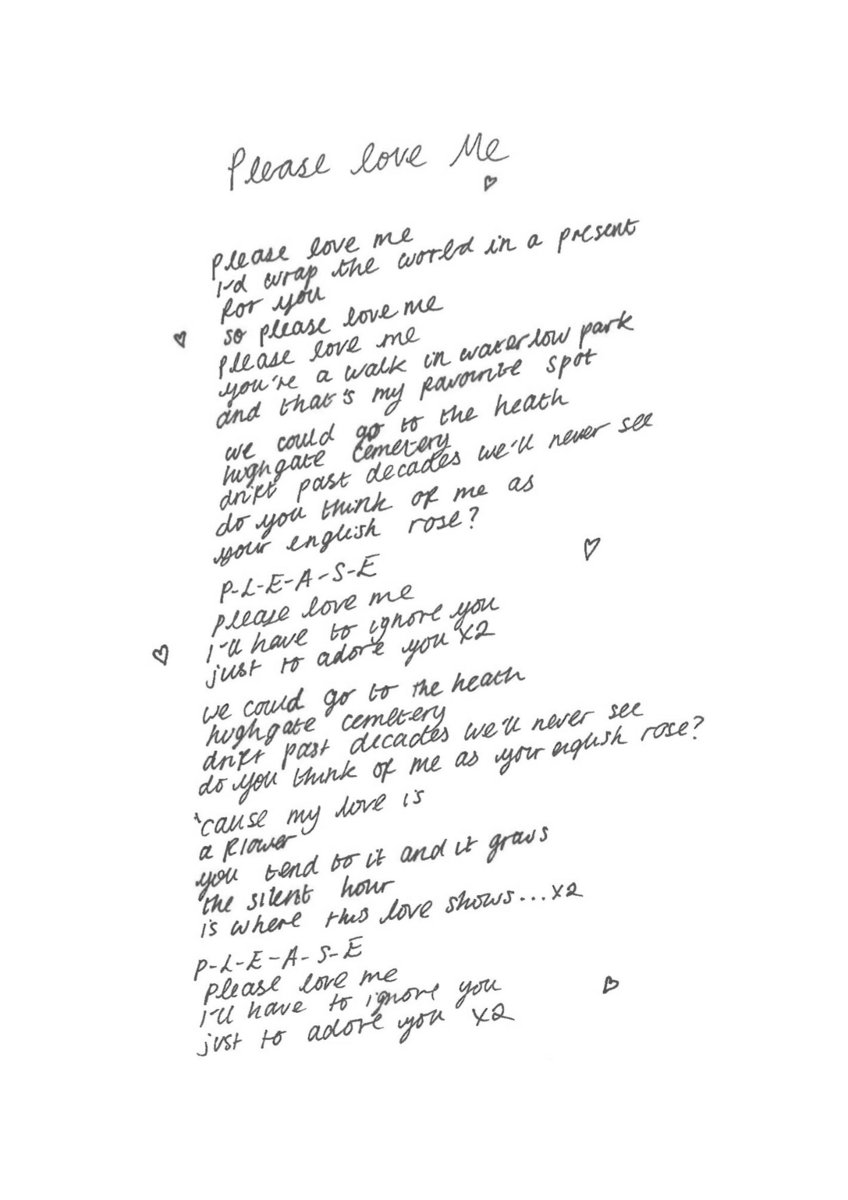 Please love Me
please love me
I'd wrap the world in a present
for you
so please love me
please love me
you're a walk in waterlow park
and that's my favourite spot
we could go to the heath
highgate cemetery
drift past decades we'll never see
do you think of me as
your english rose?
P-L-E-A-S-E
please love me
I'll have to ignore you
just to adore you x2
we could go to the heath
highgate cemetery
drift past decades we'll never see
do you think of me as your english rose?
'cause my love is
a flower
you tend to it and it grows
the silent hour
is where this love shows...x2
P-L-E-A-S-E
please love me
I'll have to ignore you
just to adore you x2